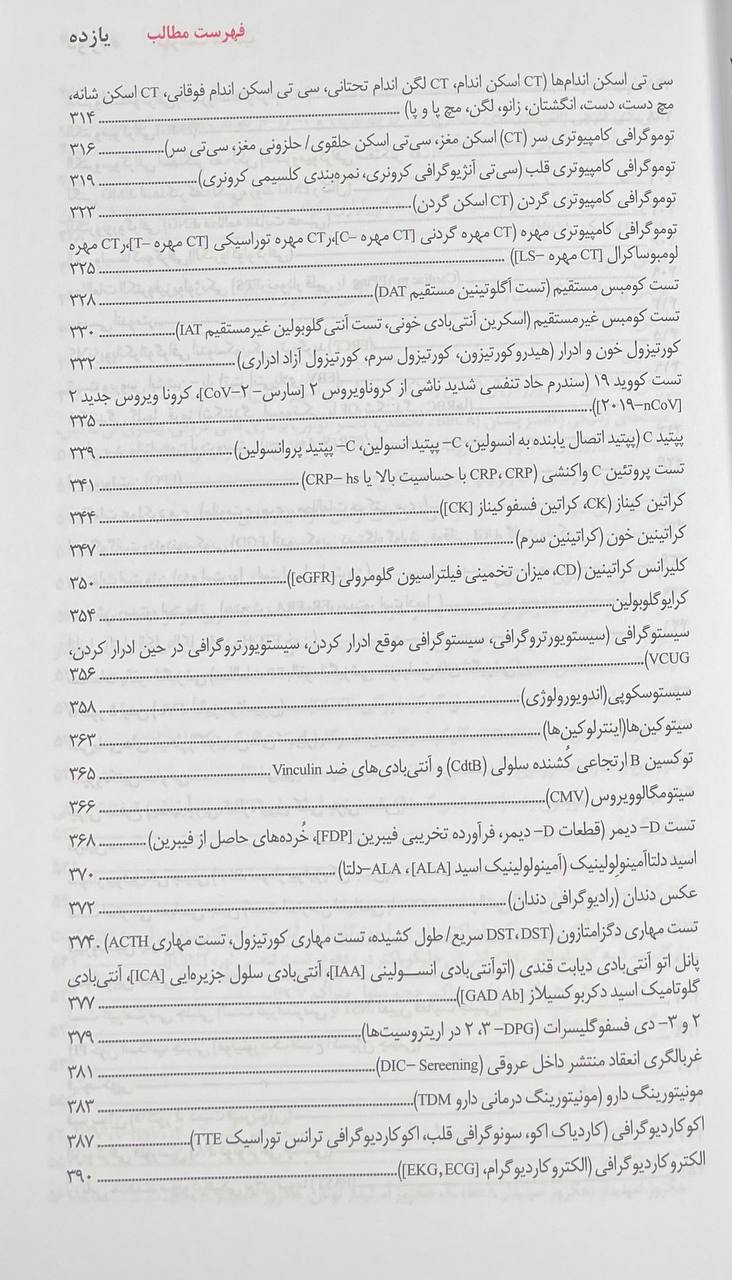 فهرست مطالب یازده
سی تی اسکن اندام‌ها (CT اسکن اندام، CT لگن اندام تحتانی، سی تی اسکن اندام فوقانی، CT اسکن شانه،
مچ دست، دست، انگشتان، زانو، لگن، مچ پا و پا) ۳۱۴
توموگرافی کامپیوتری سر (CT) اسکن مغز، سی‌تی اسکن حلقوی/ حلزونی مغز، سی‌تی سر) ۳۱۶
توموگرافی کامپیوتری قلب (سی‌تی آنژیوگرافی کرونری، نمره‌بندی کلسیمی کرونری) ۳۱۹
توموگرافی کامپیوتری گردن (CT اسکن گردن) ۳۲۳
توموگرافی کامپیوتری مهره (CT مهره گردنی [CT مهره –C]، CT مهره توراسیکی [CT مهره –T]، CT مهره
لومبوساکرال [CT مهره –LS]) ۳۲۵
تست کومبس مستقیم (تست آگلوتینین مستقیم DAT) ۳۲۸
تست کومبس غیرمستقیم (اسکرین آنتی‌بادی خونی، تست آنتی‌گلوبولین غیرمستقیم IAT) ۳۳۰
کورتیزول خون و ادرار (هیدروکورتیزون، کورتیزول سرم، کورتیزول آزاد ادراری) ۳۳۲
تست کووید ۱۹ (سندرم حاد تنفسی شدید ناشی از کروناویروس ۲ [سارس– ۲– CoV]، کرونا ویروس جدید ۲
[۲۰۱۹–nCoV]) ۳۳۵
پپتید C (پپتید اتصال یابنده به انسولین، C– پپتید انسولین، C– پپتید پروانسولین) ۳۳۹
تست پروتئین C واکنشی (CRP، CRP با حساسیت بالا یا CRP– hs) ۳۴۱
کراتین کیناز (CK، کراتین فسفوکیناز [CK]) ۳۴۴
کراتینین خون (کراتینین سرم) ۳۴۷
کلیرانس کراتینین (CD، میزان تخمینی فیلتراسیون گلومرولی [eGFR]) ۳۵۰
کرایوگلوبولین ۳۵۴
سیستوگرافی (سیستویورتروگرافی، سیستوگرافی موقع ادرار کردن، سیستویورتروگرافی در حین ادرار کردن،
VCUG) ۳۵۶
سیستوسکوپی(اندویورولوژی) ۳۵۸
سیتوکین‌ها(اینترلوکین‌ها) ۳۶۳
توکسین B ارتجاعی کُشنده سلولی (CdtB) و آنتی‌بادی‌های ضد Vinculin ۳۶۵
سیتومگالوویروس(CMV) ۳۶۶
تست D– دیمر (قطعات D– دیمر، فرآورده تخریبی فیبرین [FDP]، خُرده‌های حاصل از فیبرین) ۳۶۸
اسید دلتاآمینولولینیک (آمینولولینیک اسید [ALA]، ALA–دلتا) ۳۷۰
عکس دندان (رادیوگرافی دندان) ۳۷۲
تست مهاری دگزامتازون (DST، DST سریع/ طول کشیده، تست مهاری کورتیزول، تست مهاری ACTH) ۳۷۴
پانل اتو آنتی‌بادی دیابت قندی (اتوآنتی‌بادی انسولینی [IAA]، آنتی‌بادی سلول جزیره‌ایی [ICA]، آنتی‌بادی
گلوتامیک اسید دکربوکسیلاز [GAD Ab]) ۳۷۷
۲ و ۳– دی فسفوگلیسرات (DPG– ۲،۳ در اریتروسیت‌ها) ۳۷۹
غربالگری انعقاد منتشر داخل عروقی (DIC– Sereening) ۳۸۱
مونیتورینگ دارو (مونیتورینگ درمانی دارو TDM) ۳۸۳
اکوکاردیوگرافی (کاردیاک اکو، سونوگرافی قلب، اکوکاردیوگرافی ترانس توراسیک TTE) ۳۸۷
الکتروکاردیوگرافی (الکتروکاردیوگرام، [EKG, ECG]) ۳۹۰